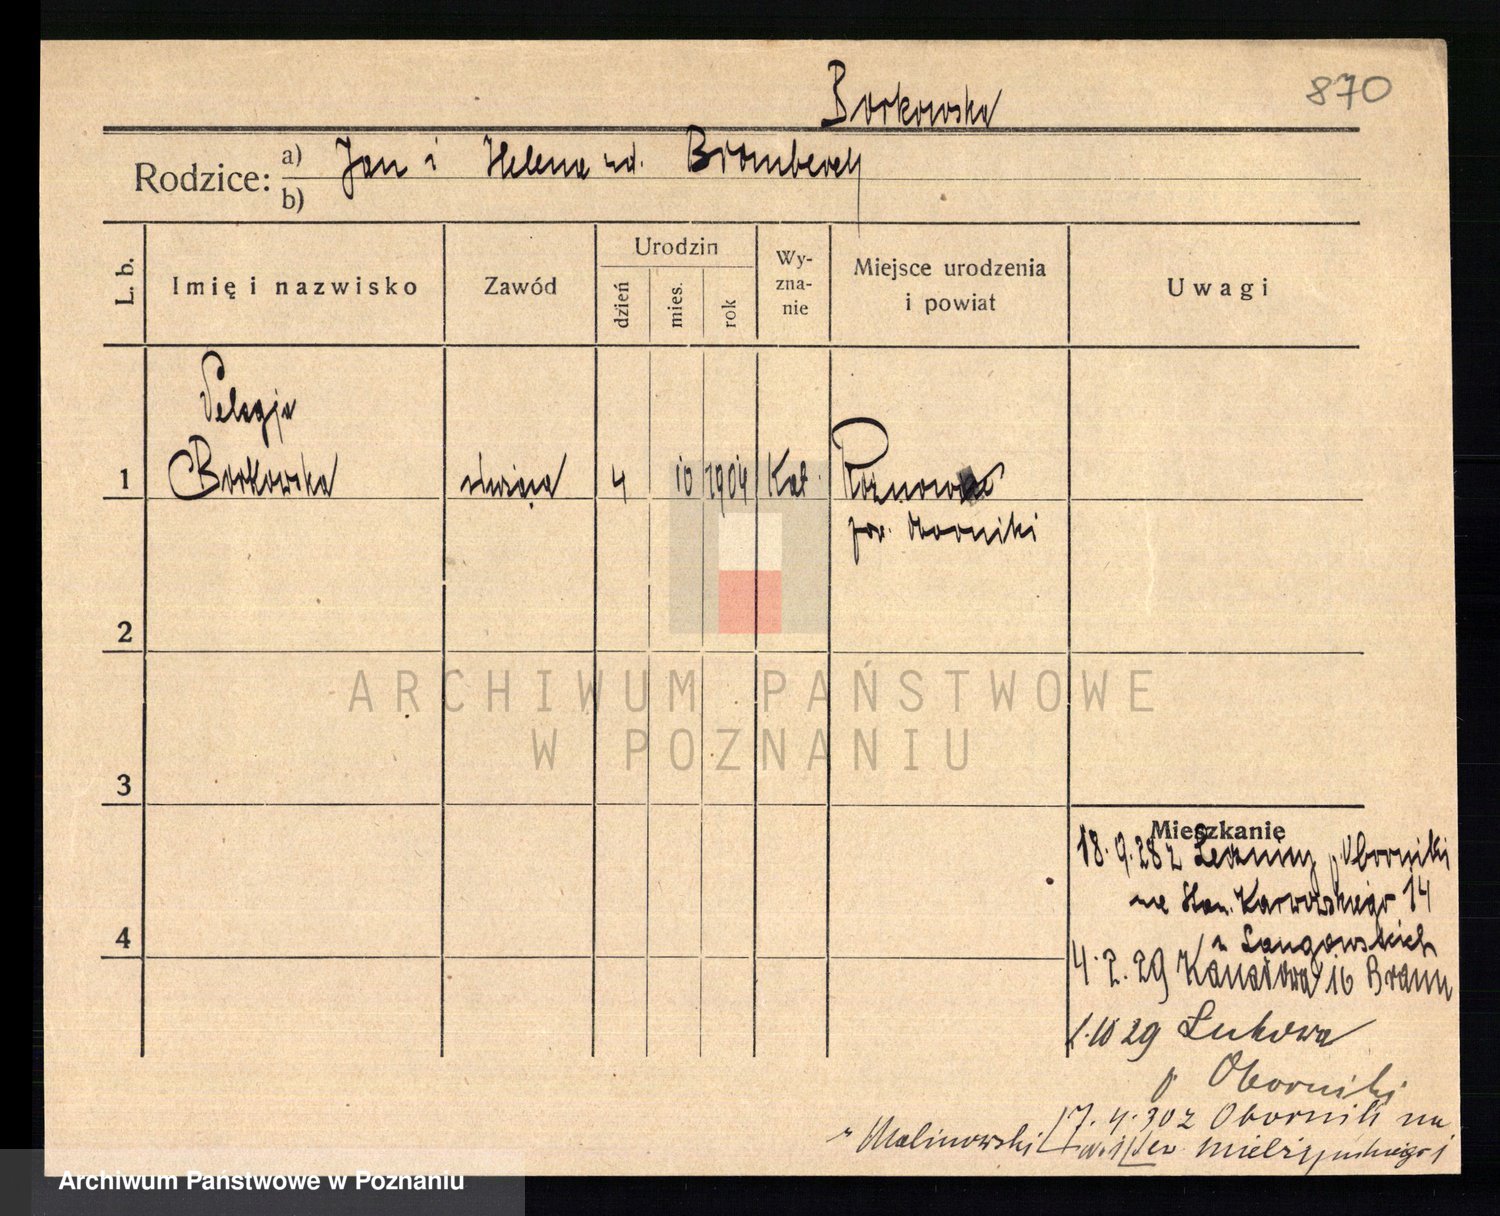 870
Borkowska
Rodzice: a) Jan i Helena ud. Bromberek
b)
L. b.
Imię i nazwisko
Zawód
Urodzin
dzień
mies.
rok
Wy-
zna-
nie
Miejsce urodzenia
i powiat
Uwagi
Pelagja
1 Borkowska służąca 4 10 1904 Kat. Rożnowo
pow. Oborniki
2
3
4
ARCHIWUM PAŃSTWOWE
W POZNANIU
Mieszkanie
18.9.28 z p. Oborniki
na Karwowskiego 14
u Langowskich
4.2.29 Kanałowa 16 Braun
1.10 29 Lukowa
p Oborniki
17.4.30 z Obornik na
u Malinowski Mielżyńskiego
Archiwum Państwowe w Poznaniu